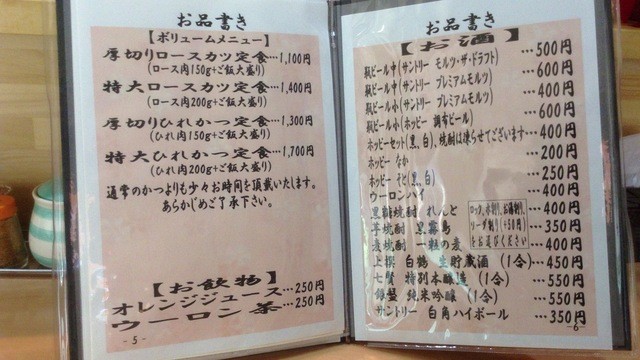 お品書き
【ボリュームメニュー】
厚切りロースカツ定食…1,100円
(ロース肉150g+ご飯大盛り)
特大ロースカツ定食…1,400円
(ロース肉200g+ご飯大盛り)
厚切りひれかつ定食…1,300円
(ひれ肉150g+ご飯大盛り)
特大ひれかつ定食…1,700円
(ひれ肉200g+ご飯大盛り)
通常のかつよりも少々お時間を頂戴いたします。
あらかじめご了承下さい。
【お飲物】
オレンジジュース…250円
ウーロン茶…250円
- 5 -
お品書き
【お酒】
瓶ビール中(サントリー モルツ・ザ・ドラフト)…500円
瓶ビール中(サントリー プレミアムモルツ)…600円
瓶ビール小(サントリー プレミアムモルツ)…400円
瓶ビール小(ホッピー 調布ビール)…600円
ホッピーセット(黒,白),焼酎は凍らせてございます…400円
ホッピー なか…200円
ホッピー そと(黒,白)…250円
ウーロンハイ…400円
黒糖焼酎 れんと…400円
芋焼酎 黒霧島…350円
麦焼酎 一粒の麦…400円
ロック,水割り,お湯割り,
ソーダ割り(+50円)
をお選びください
上撰 白鶴 生貯蔵酒 (1合)…450円
七賢 特別本醸造 (1合)…550円
銀盤 純米吟醸 (1合)…550円
サントリー 白角ハイボール…350円
- 6 -